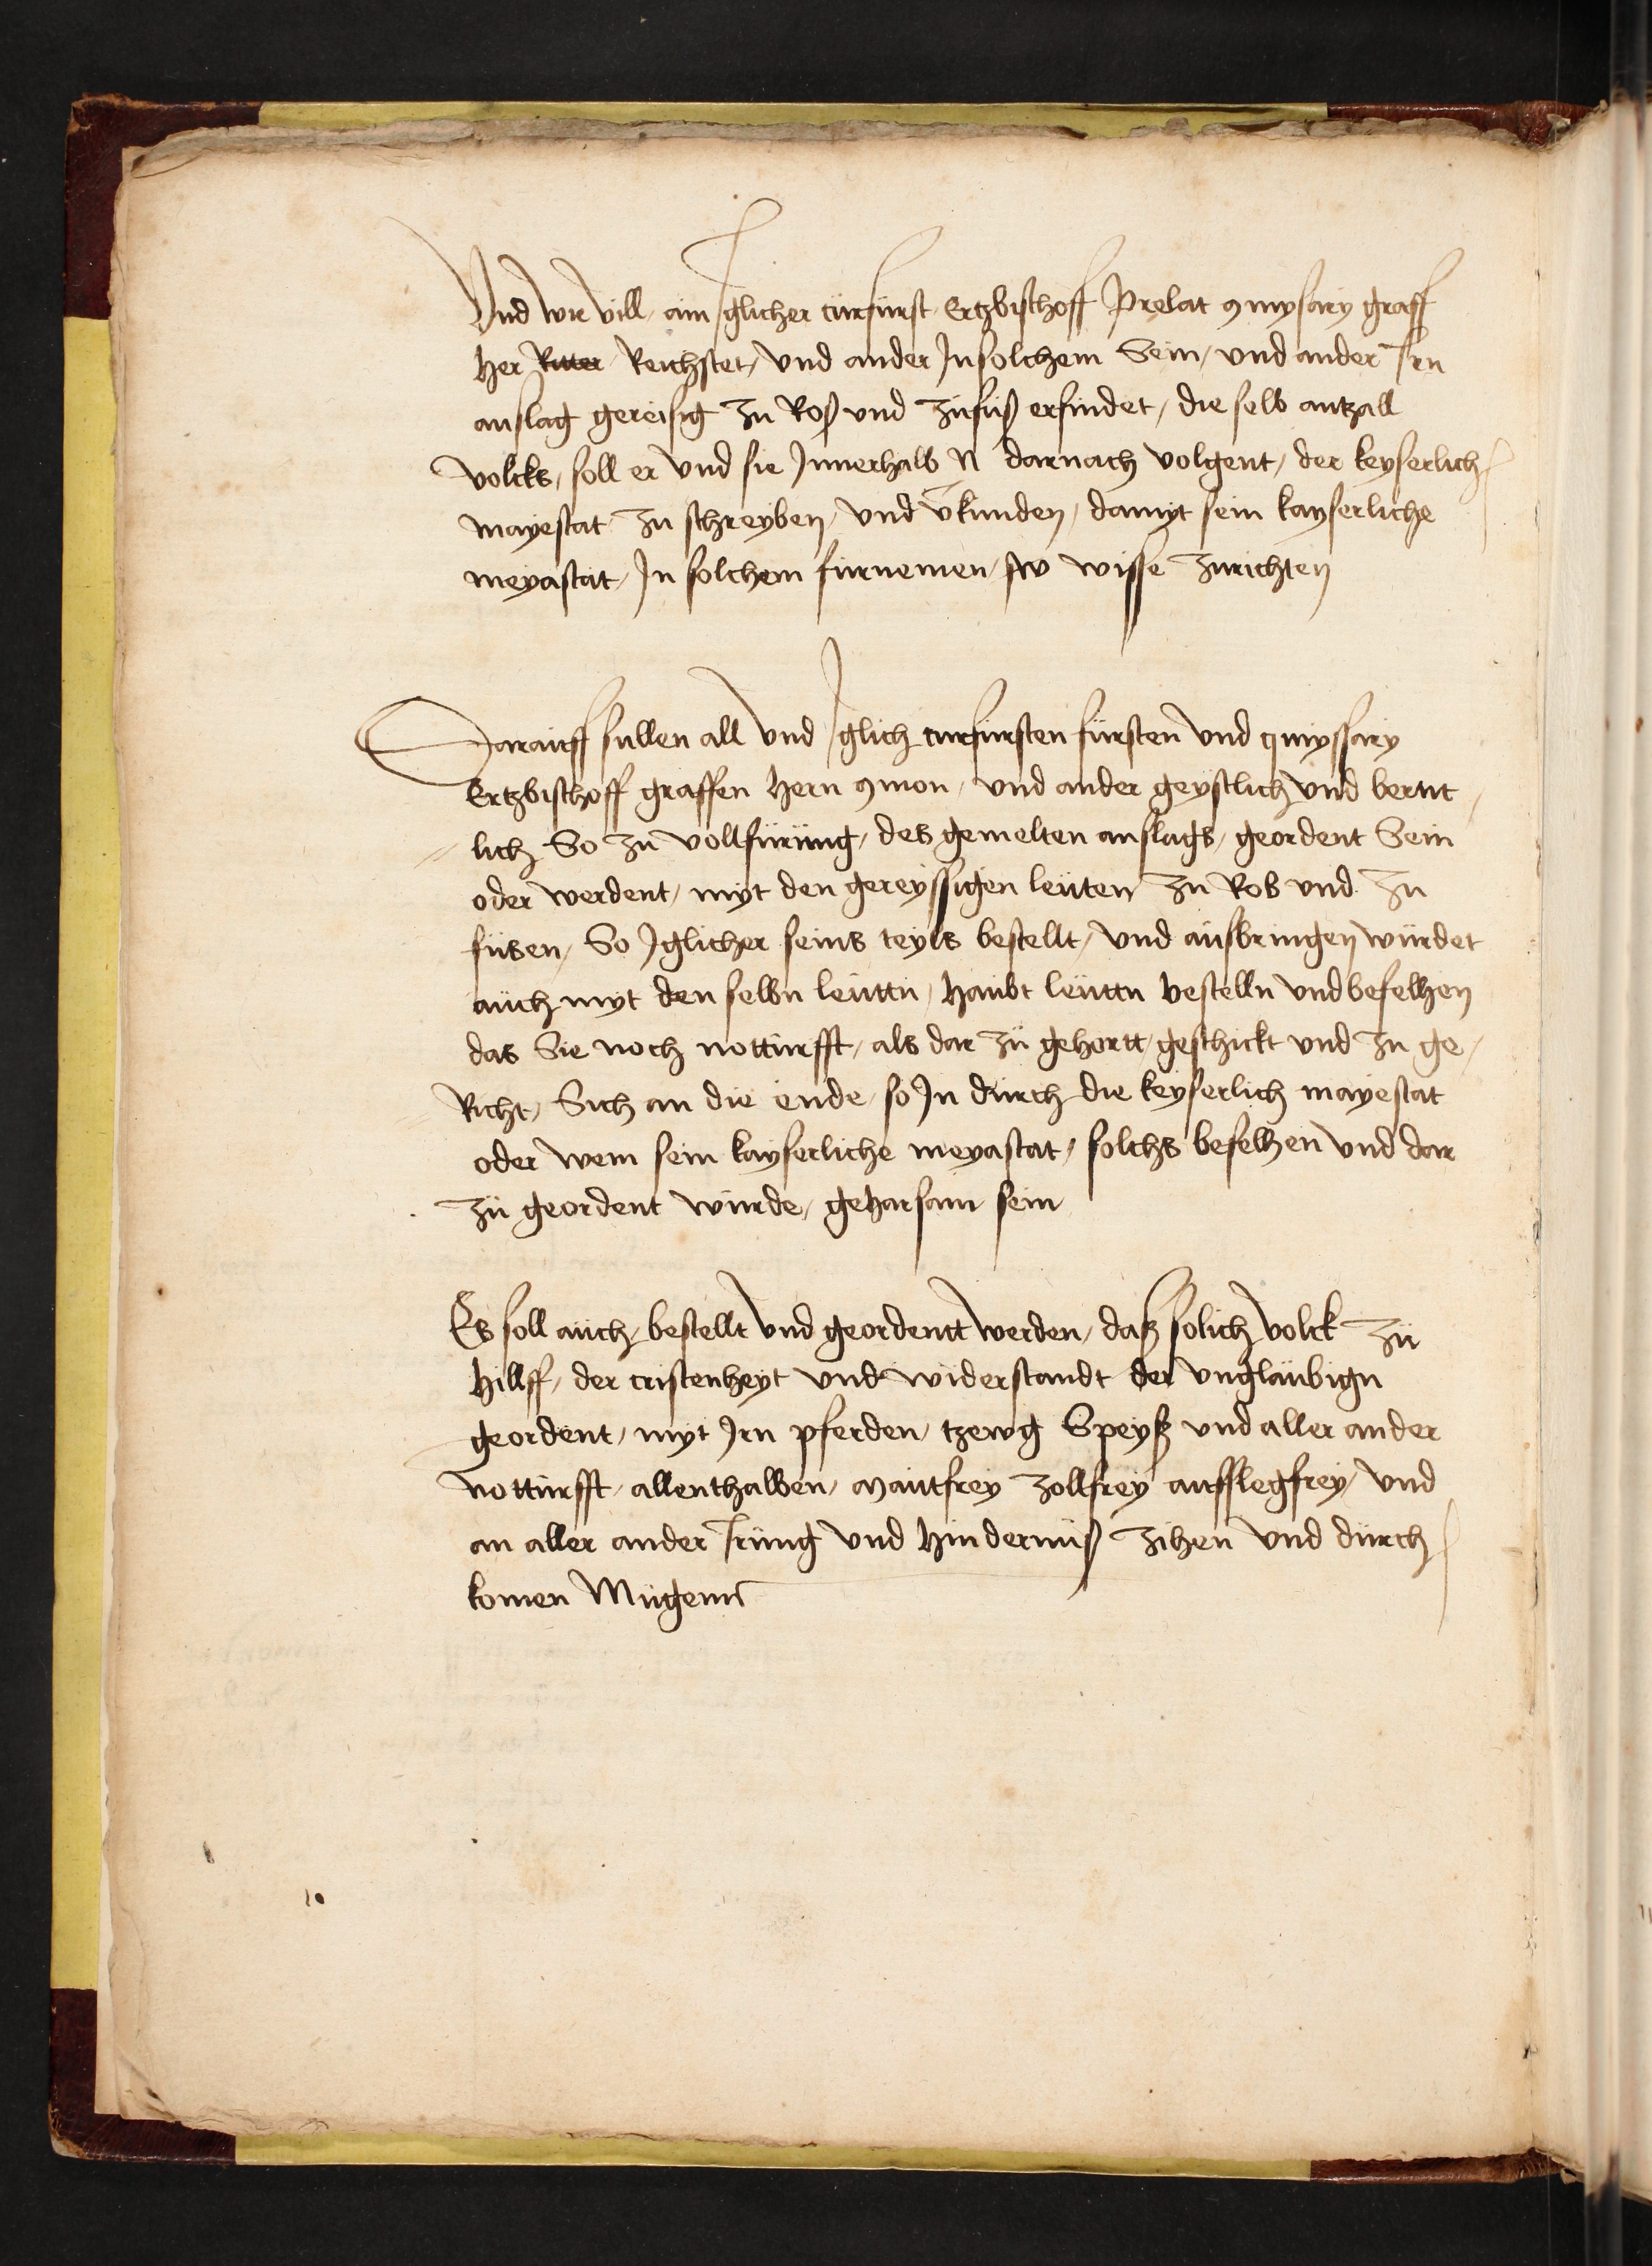 Vnd wie vill, ain Iglicher curfurst Ertzbischoff Prelat 9mysary graff
Her Ritter Reichstet, vnd ander In solchem Sein, vnd ander Irn
anslag gereisig zu Roß vnd zufuß erfindet, die selb antzall
volcks, soll er vnd sie Innerhalb N darnach volgent, der keyserlich
mayestat zu schreyben, vnd v̄kunden, damyt sein kayserliche
meyastat, In solchem furnemen, wisse zurichten
Darauff sullen all vnd Iglich curfursten fürsten vnd 9myssary
Ertzbischoff graffen Hern 9mon, vnd ander geystlich vnd
lich So zu vollfürüng, des gemelten anslags, geordent Sein
oder werdent, myt den gereyssigen leüten zu Ros vnd zu
füsen, So Iglicher seins teyls bestellt, vnd ausbringen würdet
auch myt den selbn leuttn, Haubt leuttn bestelln vnd befelhen
das Sie noch notturfft, als dar zü gehortt, geschickt vnd zu ge,
Richt, Sich an die ende, so In durch die keyserlich mayestat
oder wem sein kayserliche meyastat, solchs befelhen vnd dar
zü geordent würde, geharsam sein
Es soll auch, bestellt vnd geordentt werden, daß solich volck zü
Hillff, der cristenheyt vnd widerstandt der vnglaubign
geordent, myt Irn pferden, tzewg Speyß vnd aller ander
notturfft, allenthalben, Mautfrey zollfrey aufflegfrey, vnd
an aller ander Irüng vnd Hindernuß zihen vnd dürch
komen Mügenn